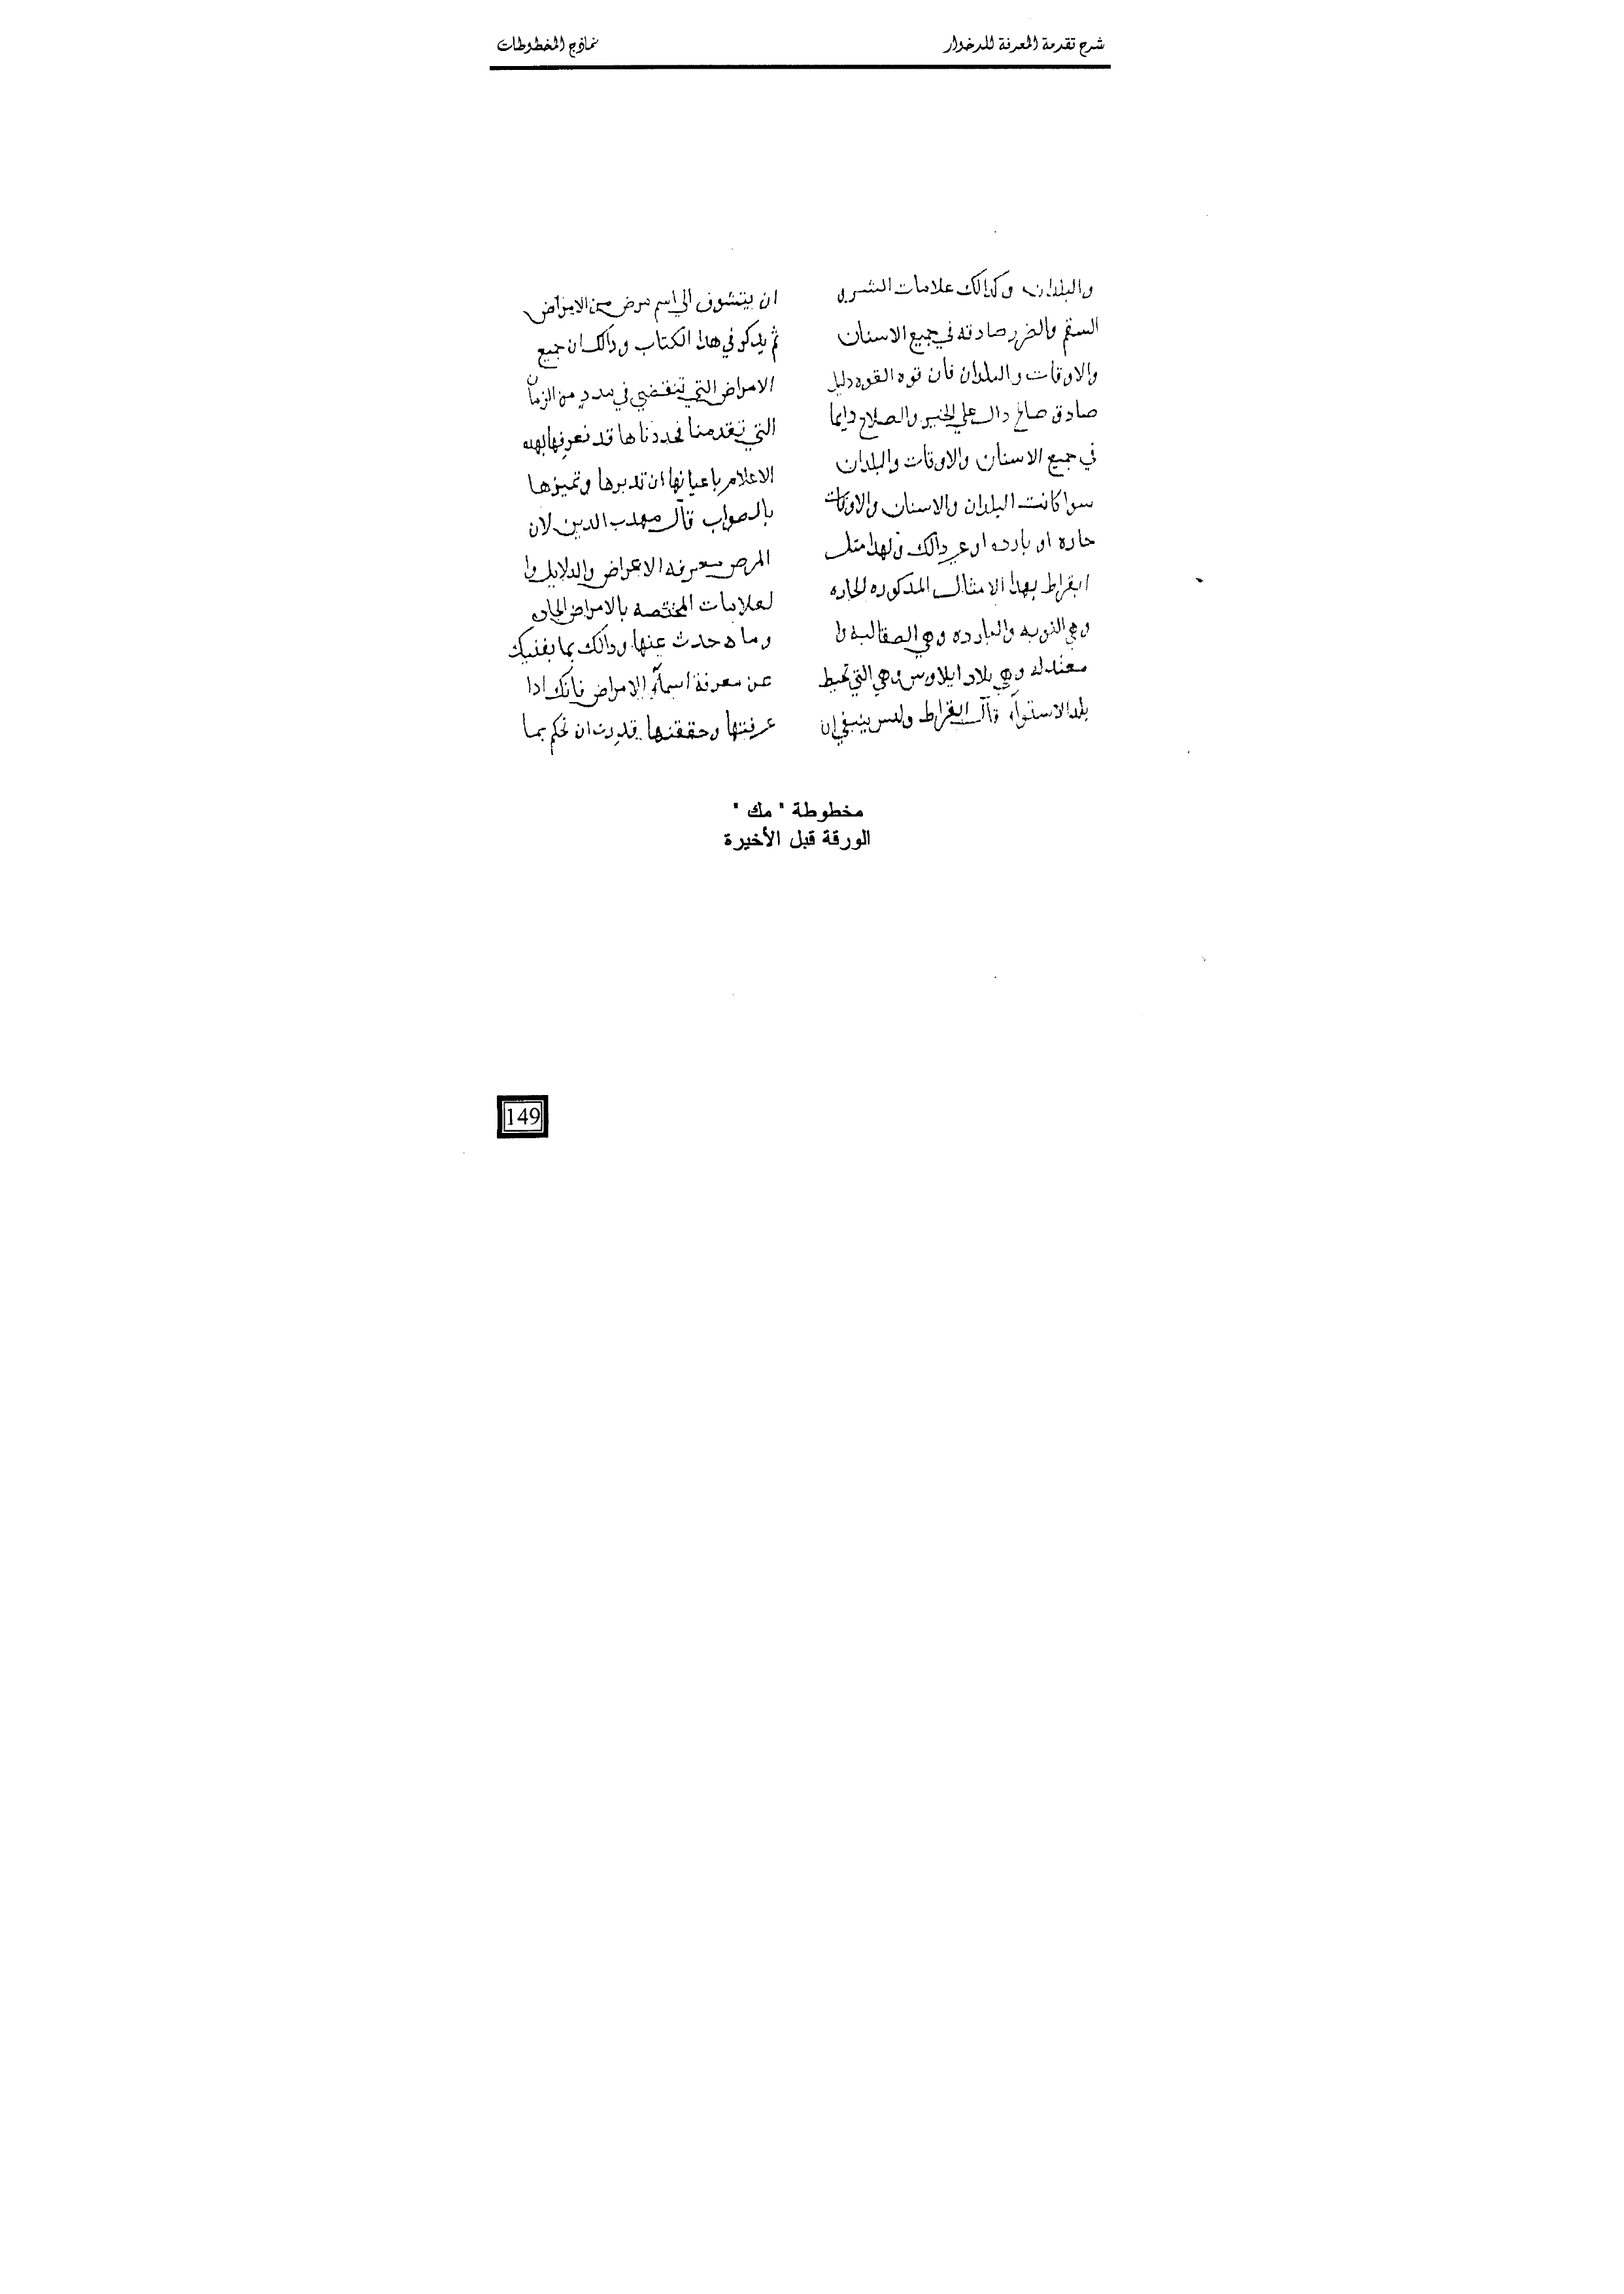 شرح تقدمة المعرفة للدخوار
نماذج المخطوطات
والبلدان وكدالك علامات الشر و
السقم والضرر صادقه في جميع الاسنان
والاوقات والبلدان فان قوه القوه دليل
صادق صالح دال علي الخير والصلاح دايما
في جميع الاسنان والاوقات والبلدان
سوا كانت البلدان والاسنان والاوقات
حاره او بارده او غير دالك ولهدا مثل
ابقراط بهدا الامثال المدكوره الحاره
وهي النوبه والبارده وهي الصقالبه وا
معتدله وهي بلاد ايلاوس وهي التي تحيط
بلد الاستوآء قآل ابقراط وليس ينبغي ان
ان يتشوف الي اسم مرض من الامراض
ثم يدكر في هدا الكتاب ودالك ان جميع
الامراض التي تنقضي في مدد من الزمان
التي تقدمنا فحددناها قد نعرفها بهده
الاعلام باعيانها ان تدبرها وتميزها
بالصواب قآل مهدب الدين لان
المرض معرفه الاعراض والدلايل وا
لعلامات المختصه بالامراض الحاده
وما حدث عنها ودالك بما يغنيك
عن معرفة اسمآء الامراض فانك ادا
عرفتها وحققتها قدرت ان تحكم بما
مخطوطة " مك "
الورقة قبل الأخيرة
149